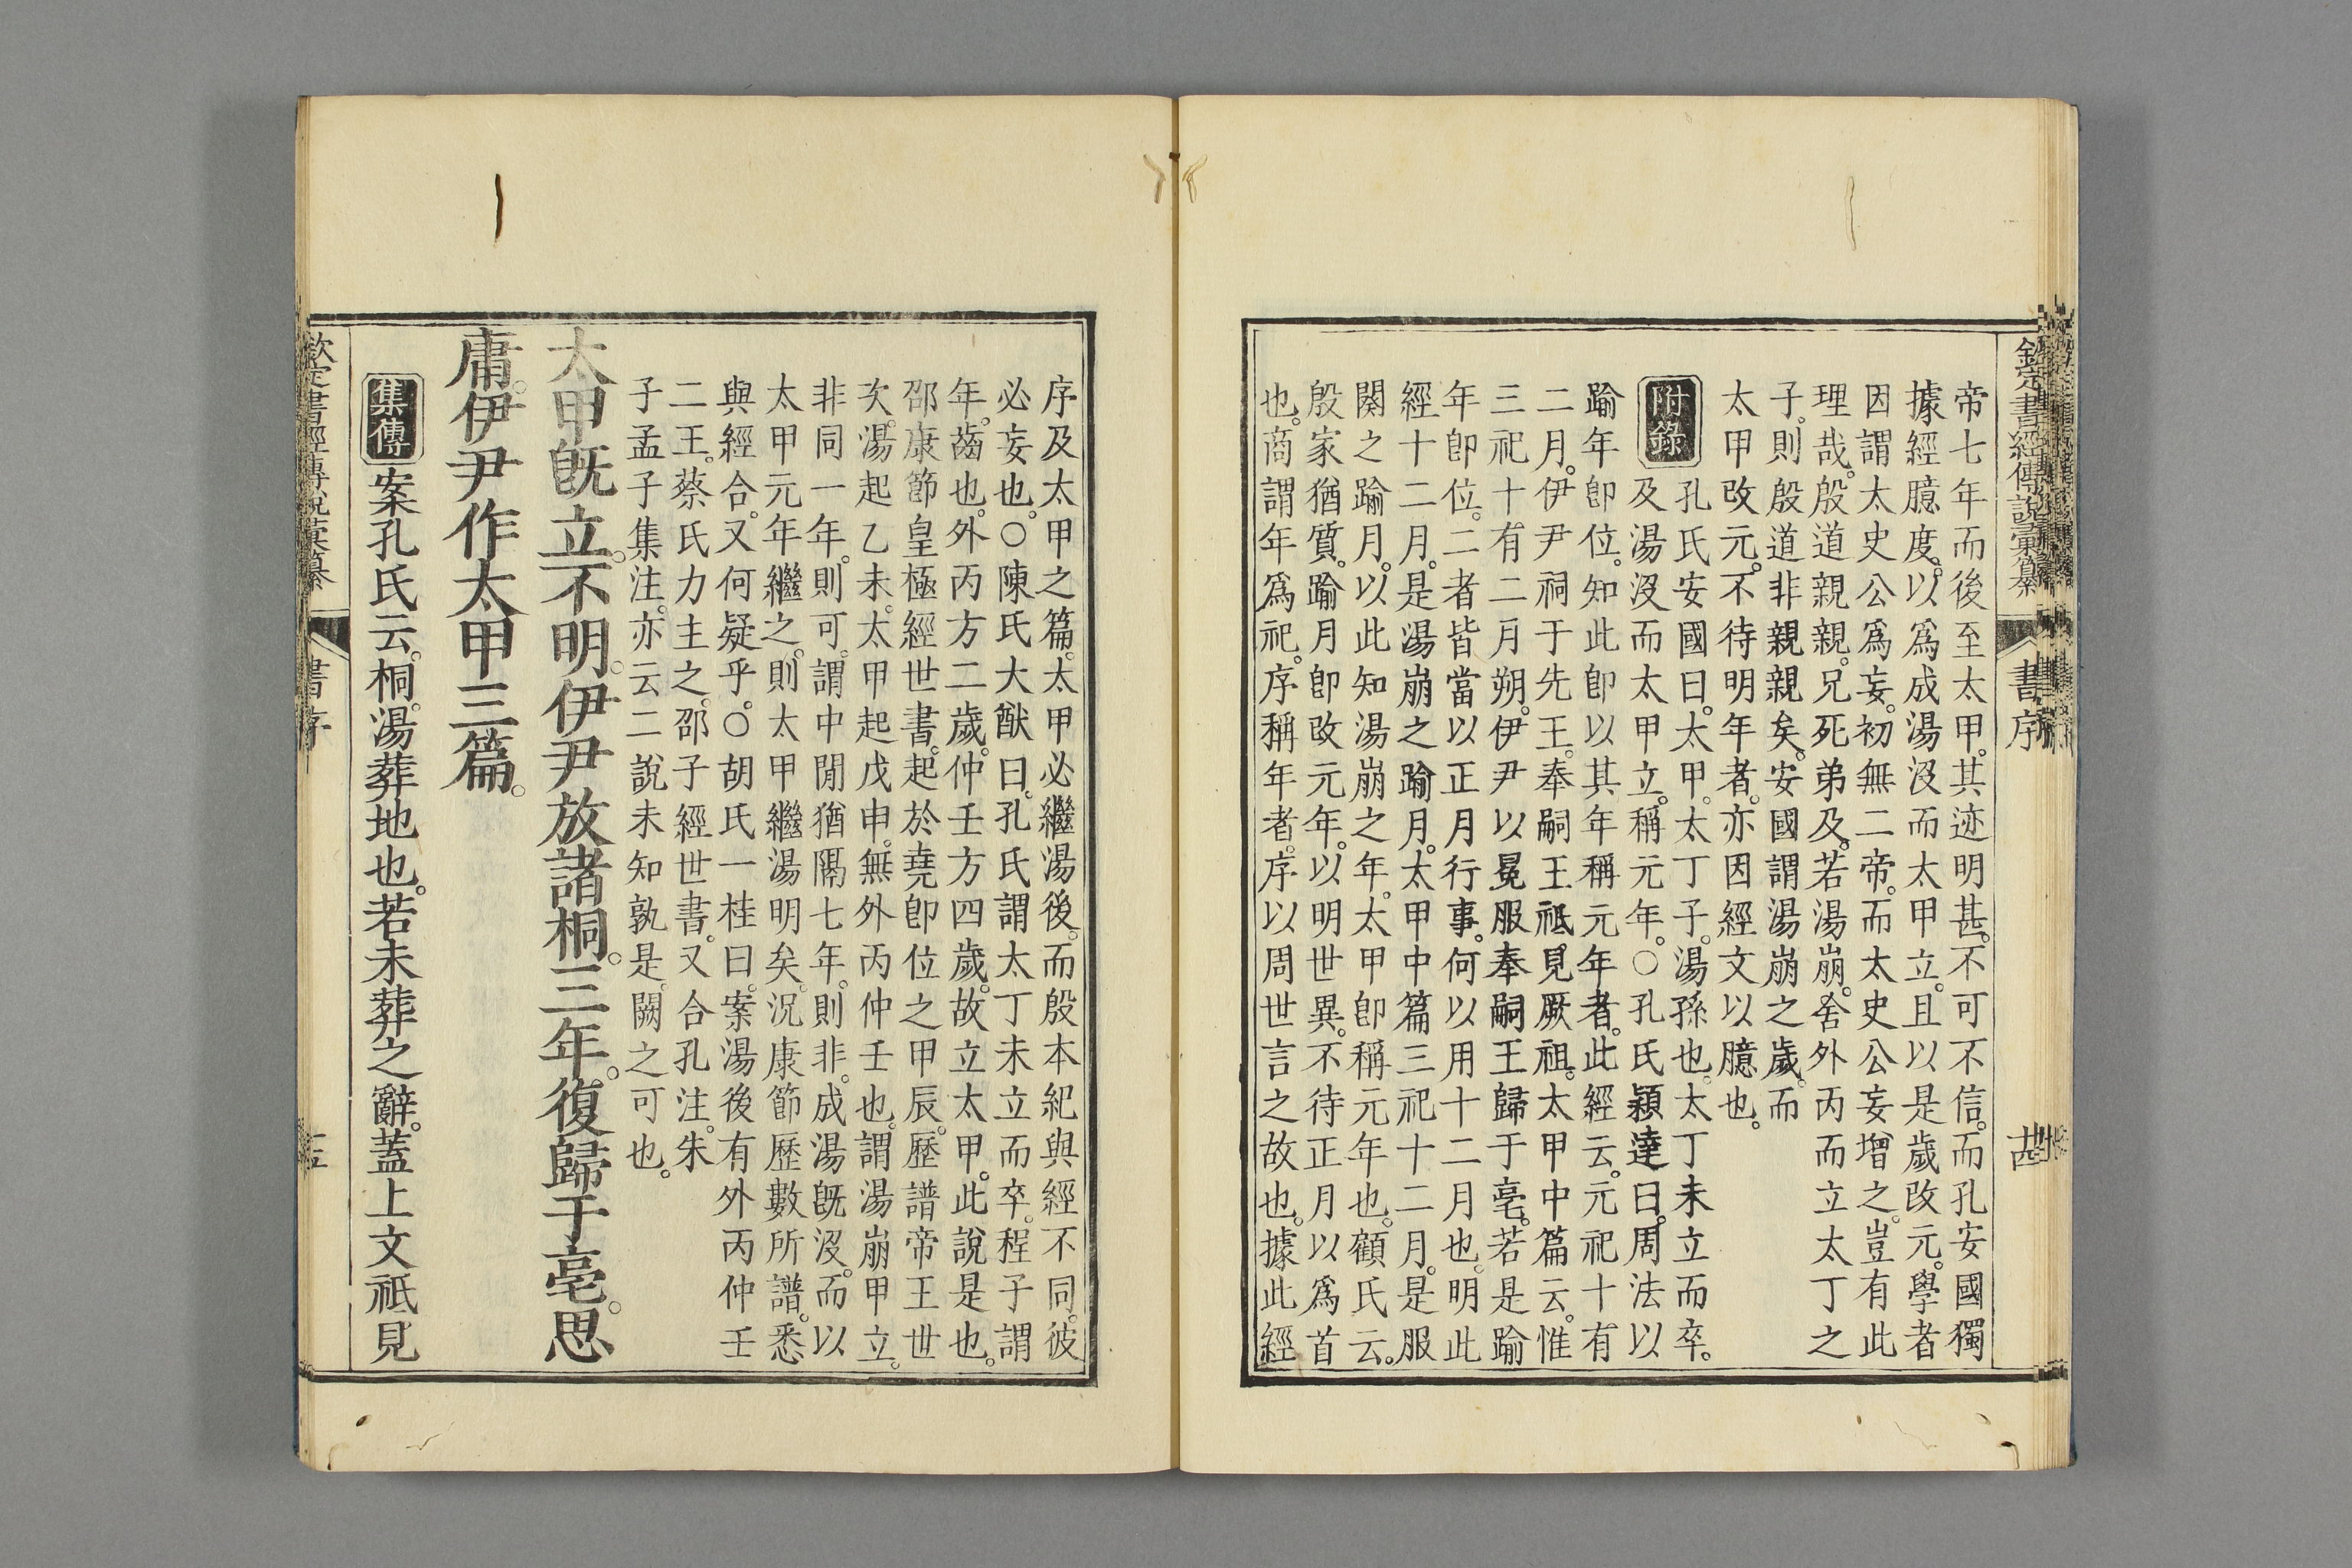 欽定書經傳說彙纂 書序 十四
帝七年而後至太甲。其迹明甚。不可不信。而孔安國獨
據經臆度。以爲成湯沒而太甲立。且以是歲改元。學者
因謂太史公爲妄。初無二帝。而太史公妄增之。豈有此
理哉。殷道親親。兄死弟及。若湯崩。舍外丙而立太丁之
子。則殷道非親親矣。安國謂湯崩之歲。而
太甲改元。不待明年者。亦因經文以臆也。
附錄 孔氏安國曰。太甲。太丁子。湯孫也。太丁未立而卒。
及湯沒而太甲立。稱元年。○孔氏穎達曰。周法以
踰年卽位。知此卽以其年稱元年者。此經云。元祀十有
二月。伊尹祠于先王。奉嗣王祗見厥祖。太甲中篇云。惟
三祀十有二月朔。伊尹以冕服奉嗣王歸于亳。若是踰
年卽位。二者皆當以正月行事。何以用十二月也。明此
經十二月。是湯崩之踰月。太甲中篇三祀十二月。是服
闋之踰月。以此知湯崩之年。太甲卽稱元年也。顧氏云。
殷家猶質。踰月卽改元年。以明世異。不待正月以爲首
也。商謂年爲祀。序稱年者。序以周世言之故也。據此經
序及太甲之篇。太甲必繼湯後。而殷本紀與經不同。彼
必妄也。○陳氏大猷曰。孔氏謂太丁未立而卒。程子謂
年。齒也。外丙方二歲。仲壬方四歲。故立太甲。此說是也。
邵康節皇極經世書。起於堯卽位之甲辰。歷譜帝王世
次。湯起乙未。太甲起戊申。無外丙仲壬也。謂湯崩甲立。
非同一年。則可。謂中閒猶隔七年。則非。成湯旣沒。而以
太甲元年繼之。則太甲繼湯明矣。況康節歷數所譜。悉
與經合。又何疑乎。○胡氏一桂曰。案湯後有外丙仲壬
二王。蔡氏力主之。邵子經世書。又合孔注。朱
子孟子集注。亦云二說未知孰是。闕之可也。
太甲旣立。不明。伊尹放諸桐。三年。復歸于亳。思
庸。伊尹作太甲三篇。
集傳 案孔氏云。桐。湯葬地也。若未葬之辭。蓋上文祗見
欽定書經傳說彙纂 書序